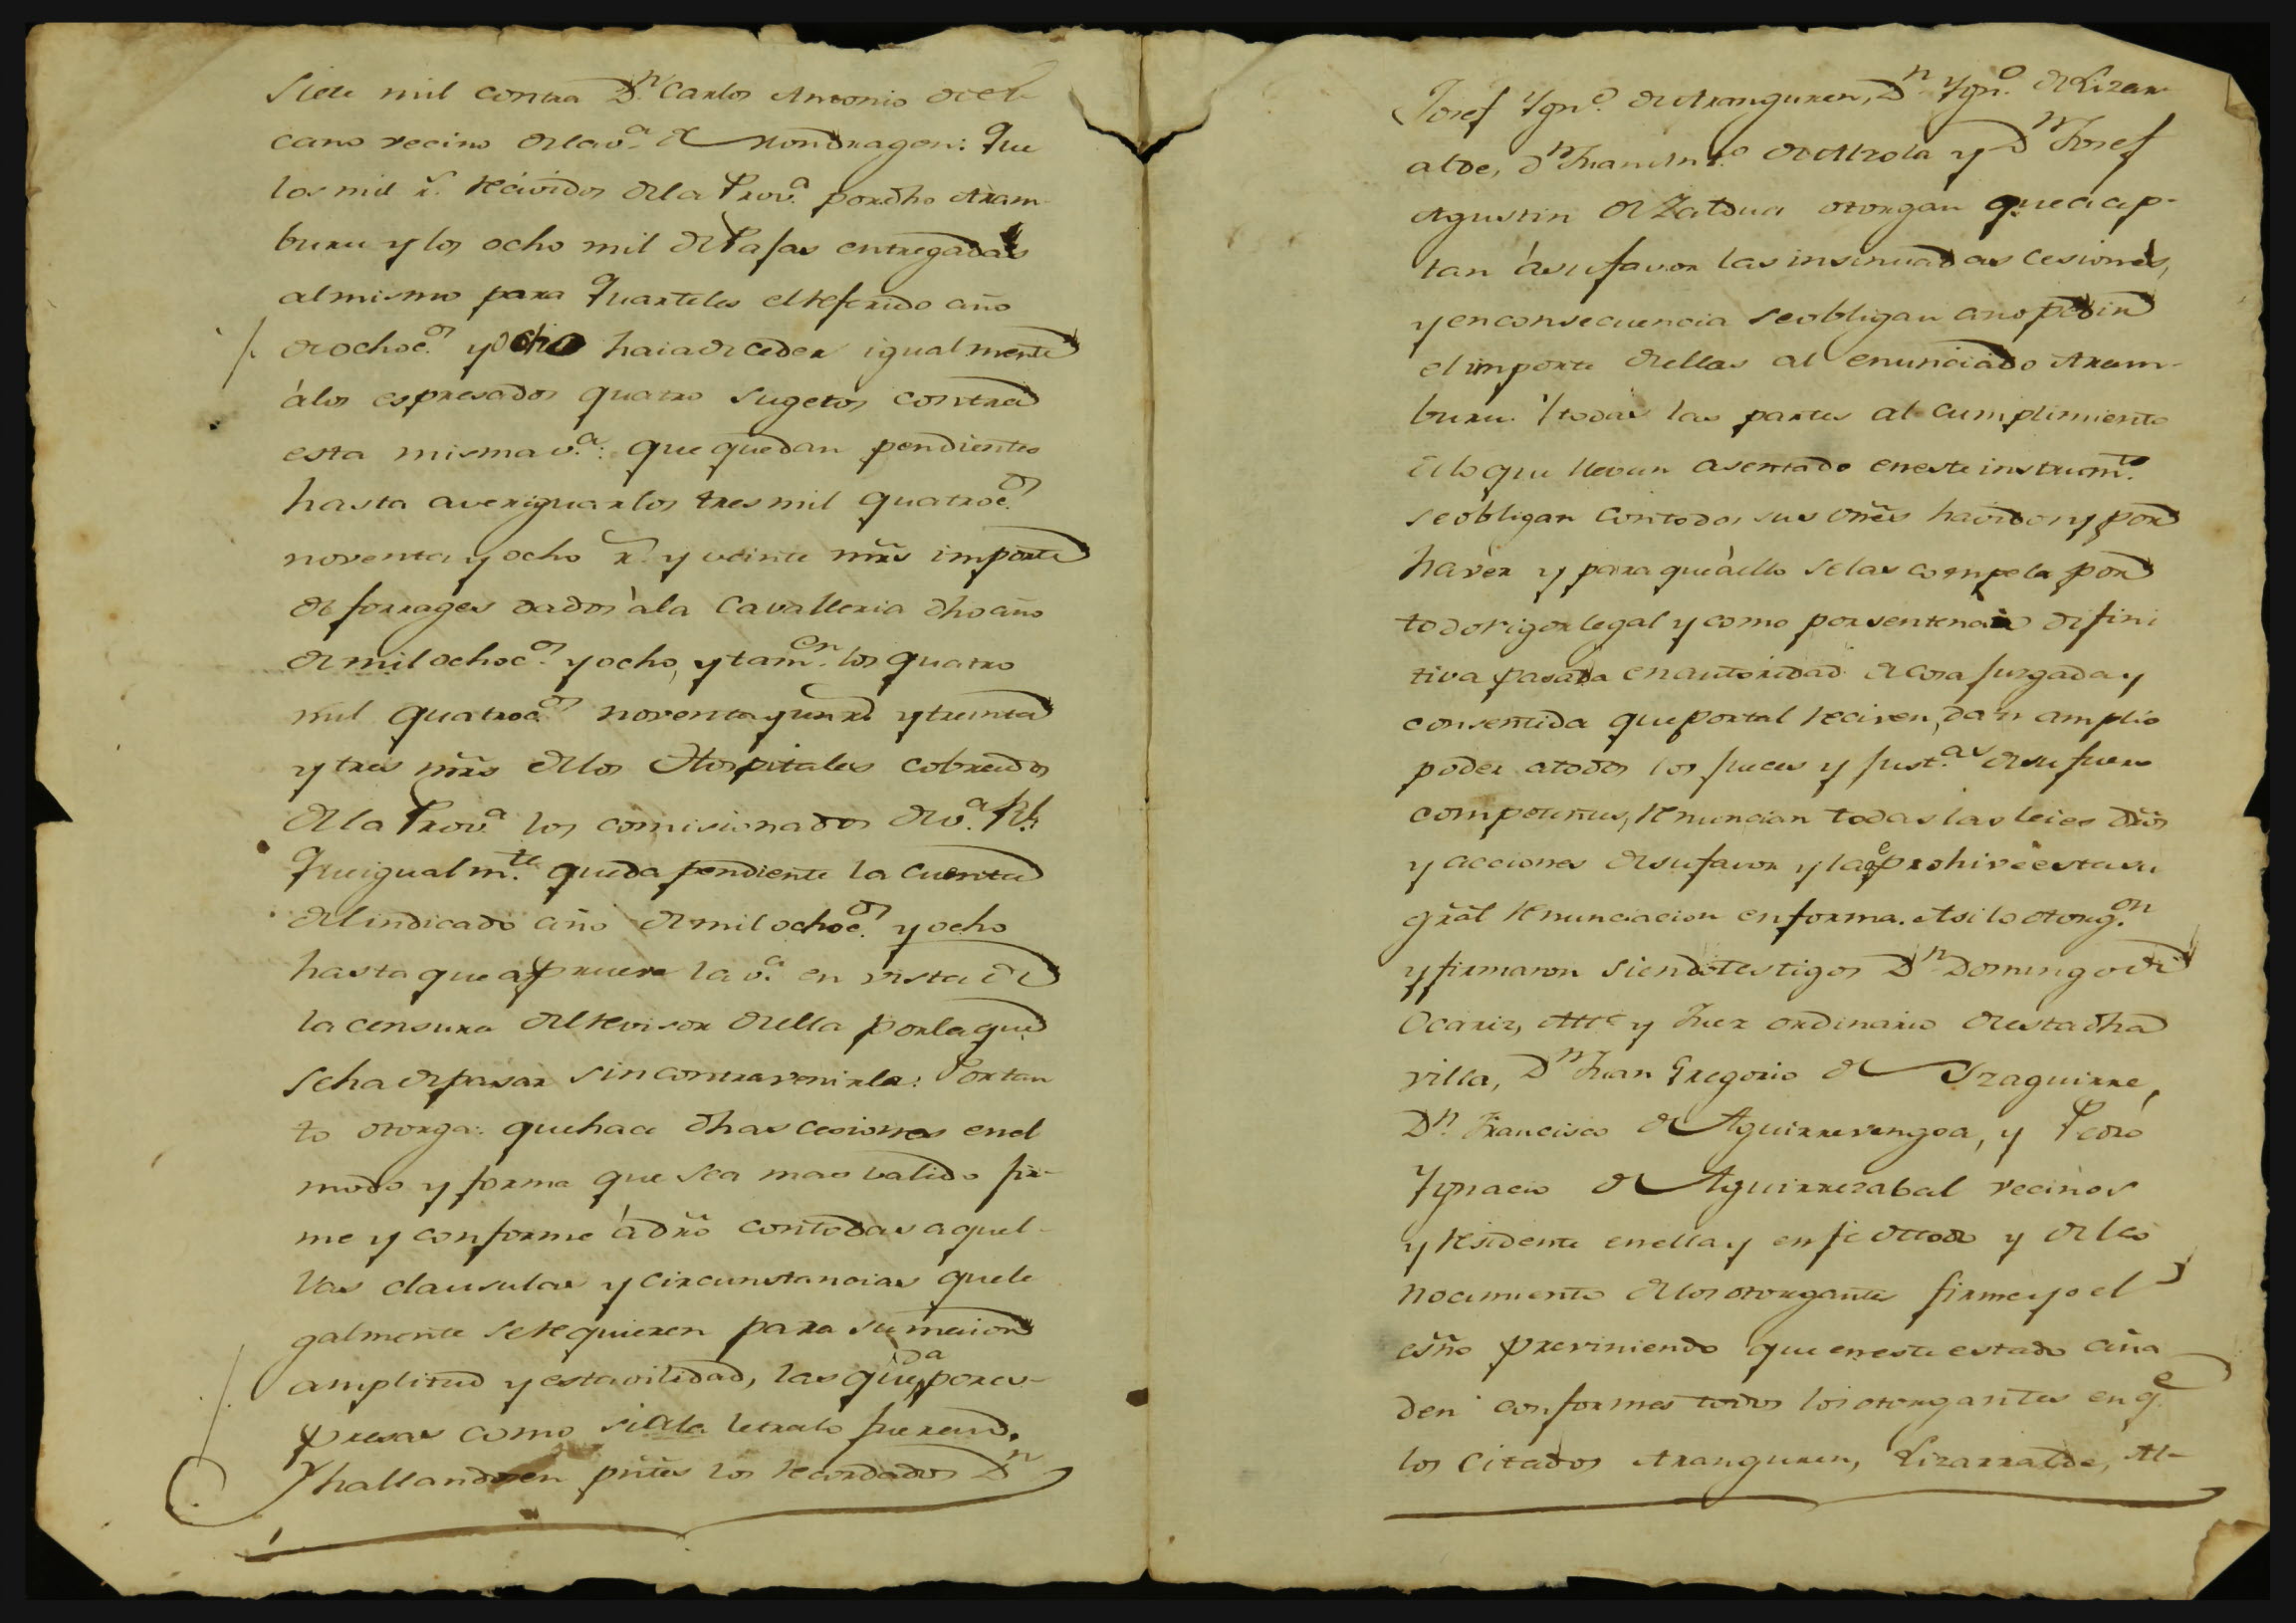 Siete mil contra Dn. Carlos Antonio de el
cano vecino de la va. de Mondragon: Que
los mil rs. recividos de la Prova. por dho Aram-
buru y los ocho mil de Pajas entregadas
al mismo para Quarteles el referido año
de ochocos. y ocho haia de ceder igualmente
á los espresados quatro sugetos contra
esta misma va.: que quedan pendientes
hasta averiguar los tres mil quatrocos.
noventa y ocho rs. y veinte mrs importe
de forrages dados á la Cavalleria dho año
de mil ochocos. y ocho, y tamen. los quatro
mil quatrocos. noventa y un rs. y treinta
y tres mrs de los Hospitales cobrados
de la Prova. los comisionados de va.
Que igualmte. queda pendiente la cuenta
del indicado año de mil ochocos. y ocho
hasta que aprueve la va. en vista de
la censura del revisor de ella por la que
se ha de pasar sin contravenirla: Por tan
to otorga: que hace dhas cesiones en el
modo y forma que sea mas valido fir-
me y conforme á dro con todas aquel-
las clausulas y circunstancias que le
galmente se requieren para su maior
amplitud y estavilidad, las que da por es-
presas como si a la letra lo fueran.
Y hallandose en pntes los recordados Dn
Josef Ygno. de Aranguren, Dn. Ygno. de Lizarr
alde, Dn Juan Anto. de Alzola y Dn Josef
Agustin de Zaldua otorgan que acep-
tan á su favor las insinuadas cesiones,
y en consecuencia se obligan a no pedir
el importe de ellas al enunciado Aram-
buru. Y todas las partes al cumplimiento
de lo que llevan asentado en este instrumto.
se obligan con todos sus vnes havidos y por
haver y para que á ello se las compela por
todo rigor legal y como por sentencia difini
tiva pasada en autoridad de cosa juzgada y
consentida que por tal reciven, dan amplio
poder a todos los jueces y justas. de su fuero
competentes, renuncian todas las leies dros
y acciones de su favor y la qe prohive esta su
gral renunciacion en forma. Asi lo otorgon.
y firmaron siendo testigos Dn Domingo de
Ocariz, Alle y Juez ordinario de esta dha
villa, Dn Juan Gregorio de Yzaguirre,
Dn. Francisco de Aguirrevengoa, y Pedro
Ygnacio de Aguirrezabal vecinos
y residente en ella y en fe de todo y de el co
nocimiento de los otorgantes firme yo el
esno previniendo que en este estado aña
den conformes todos los otorgantes en qe.
los citados Aranguren, Lizarralde, Al-